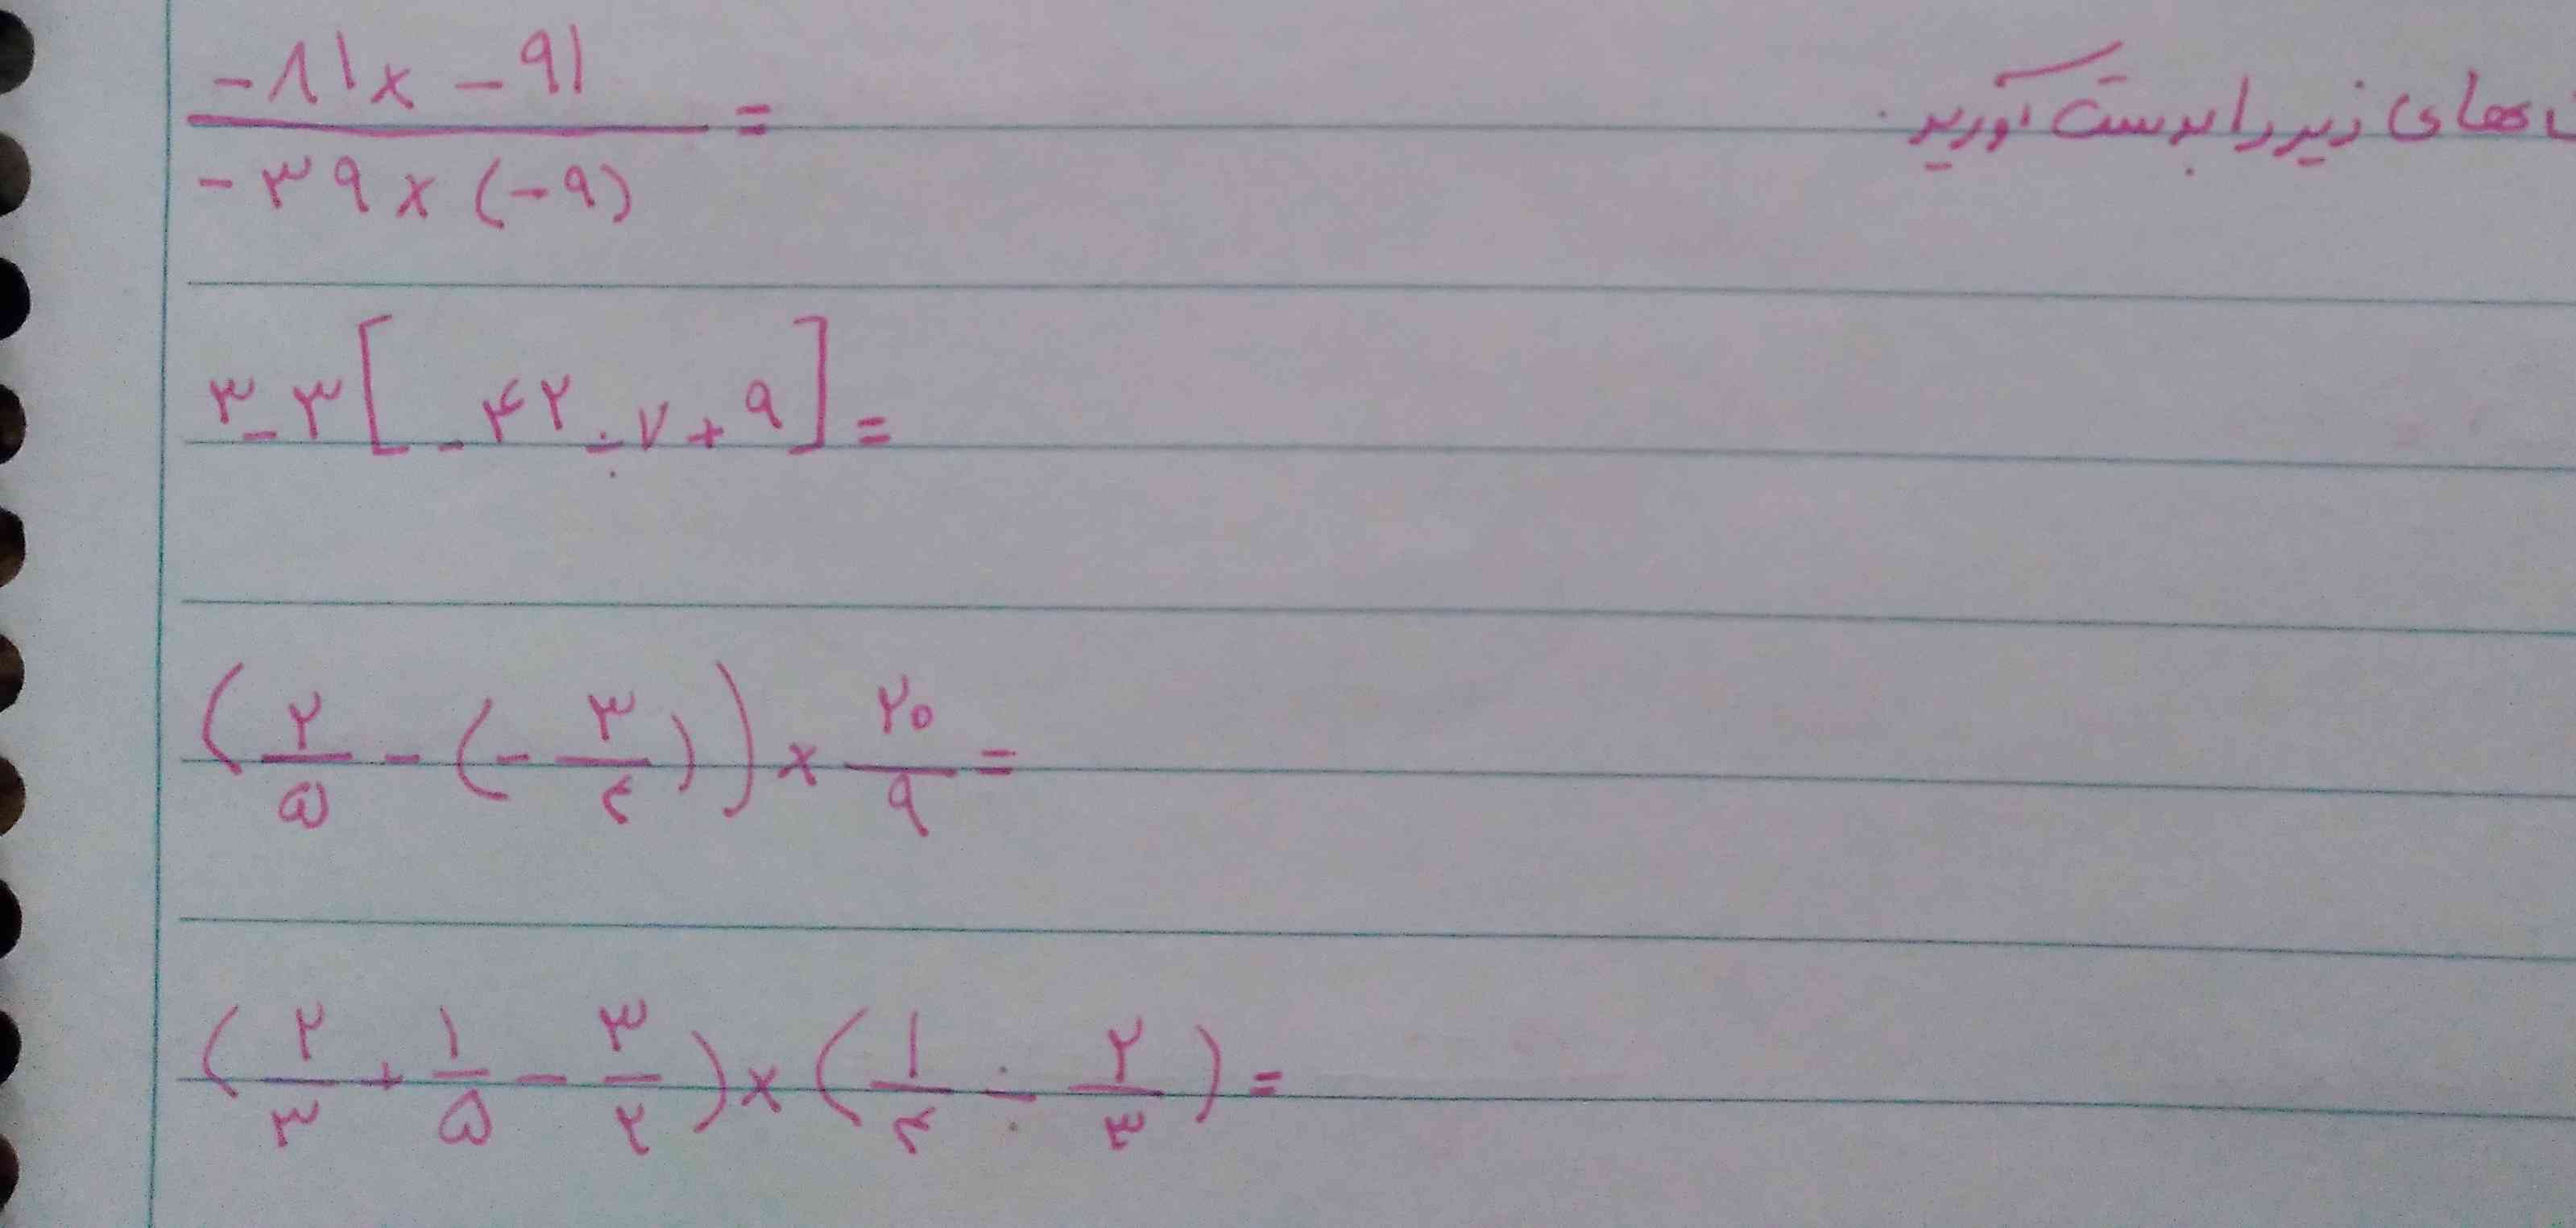 های زیر را بدست آورید.
-۸۱ × -۹۱
-۳۹ × (-۹) =
۳ - ۳[-۴۲ ÷ ۷ + ۹] =
(۲/۵ - (-۳/۴)) × ۲۰/۹ =
(۲/۳ + ۱/۵ - ۳/۲) × (۱/۴ ÷ ۲/۳) =